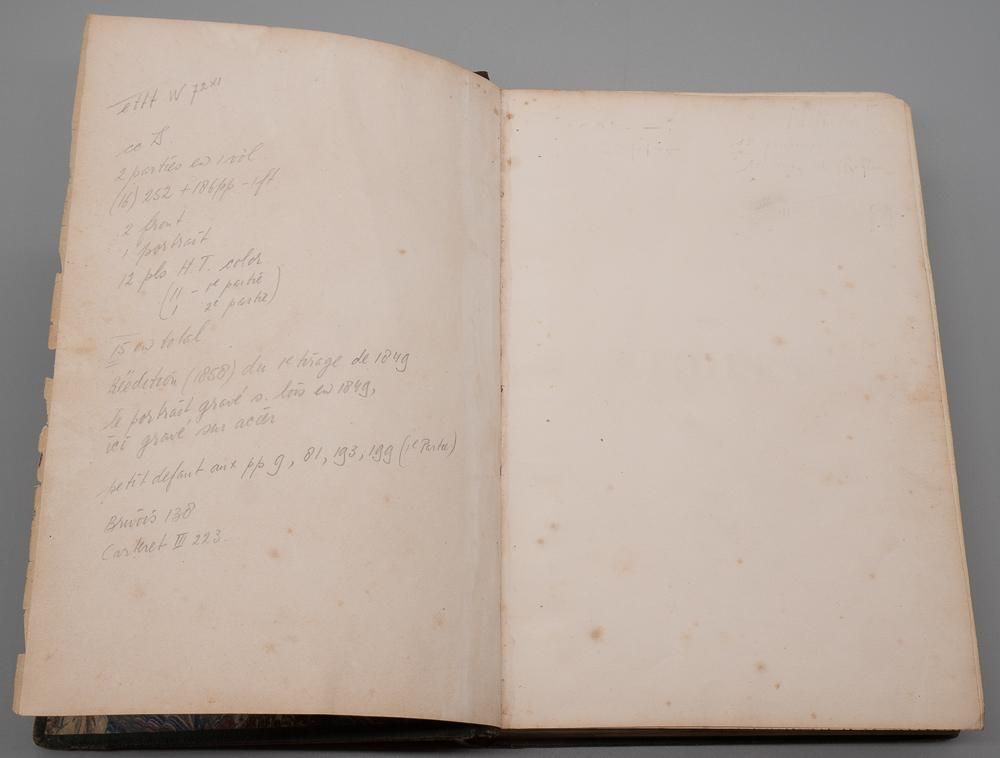 ettt W 72 XI
cc D.
2 parties en 1 vol
(16) 252 + 186 pp - 1 ft
2 front
1 portrait
12 pls H.T. color
(11 - 1e partie
1 2e partie)
15 en total
Réédition (1858) du 1e tirage de 1849
le portrait gravé s. bois en 1849,
ici gravé sur acier
petit défaut aux pp 9, 81, 193, 199 (1e Partie)
Brivois 138
Carteret III 223.